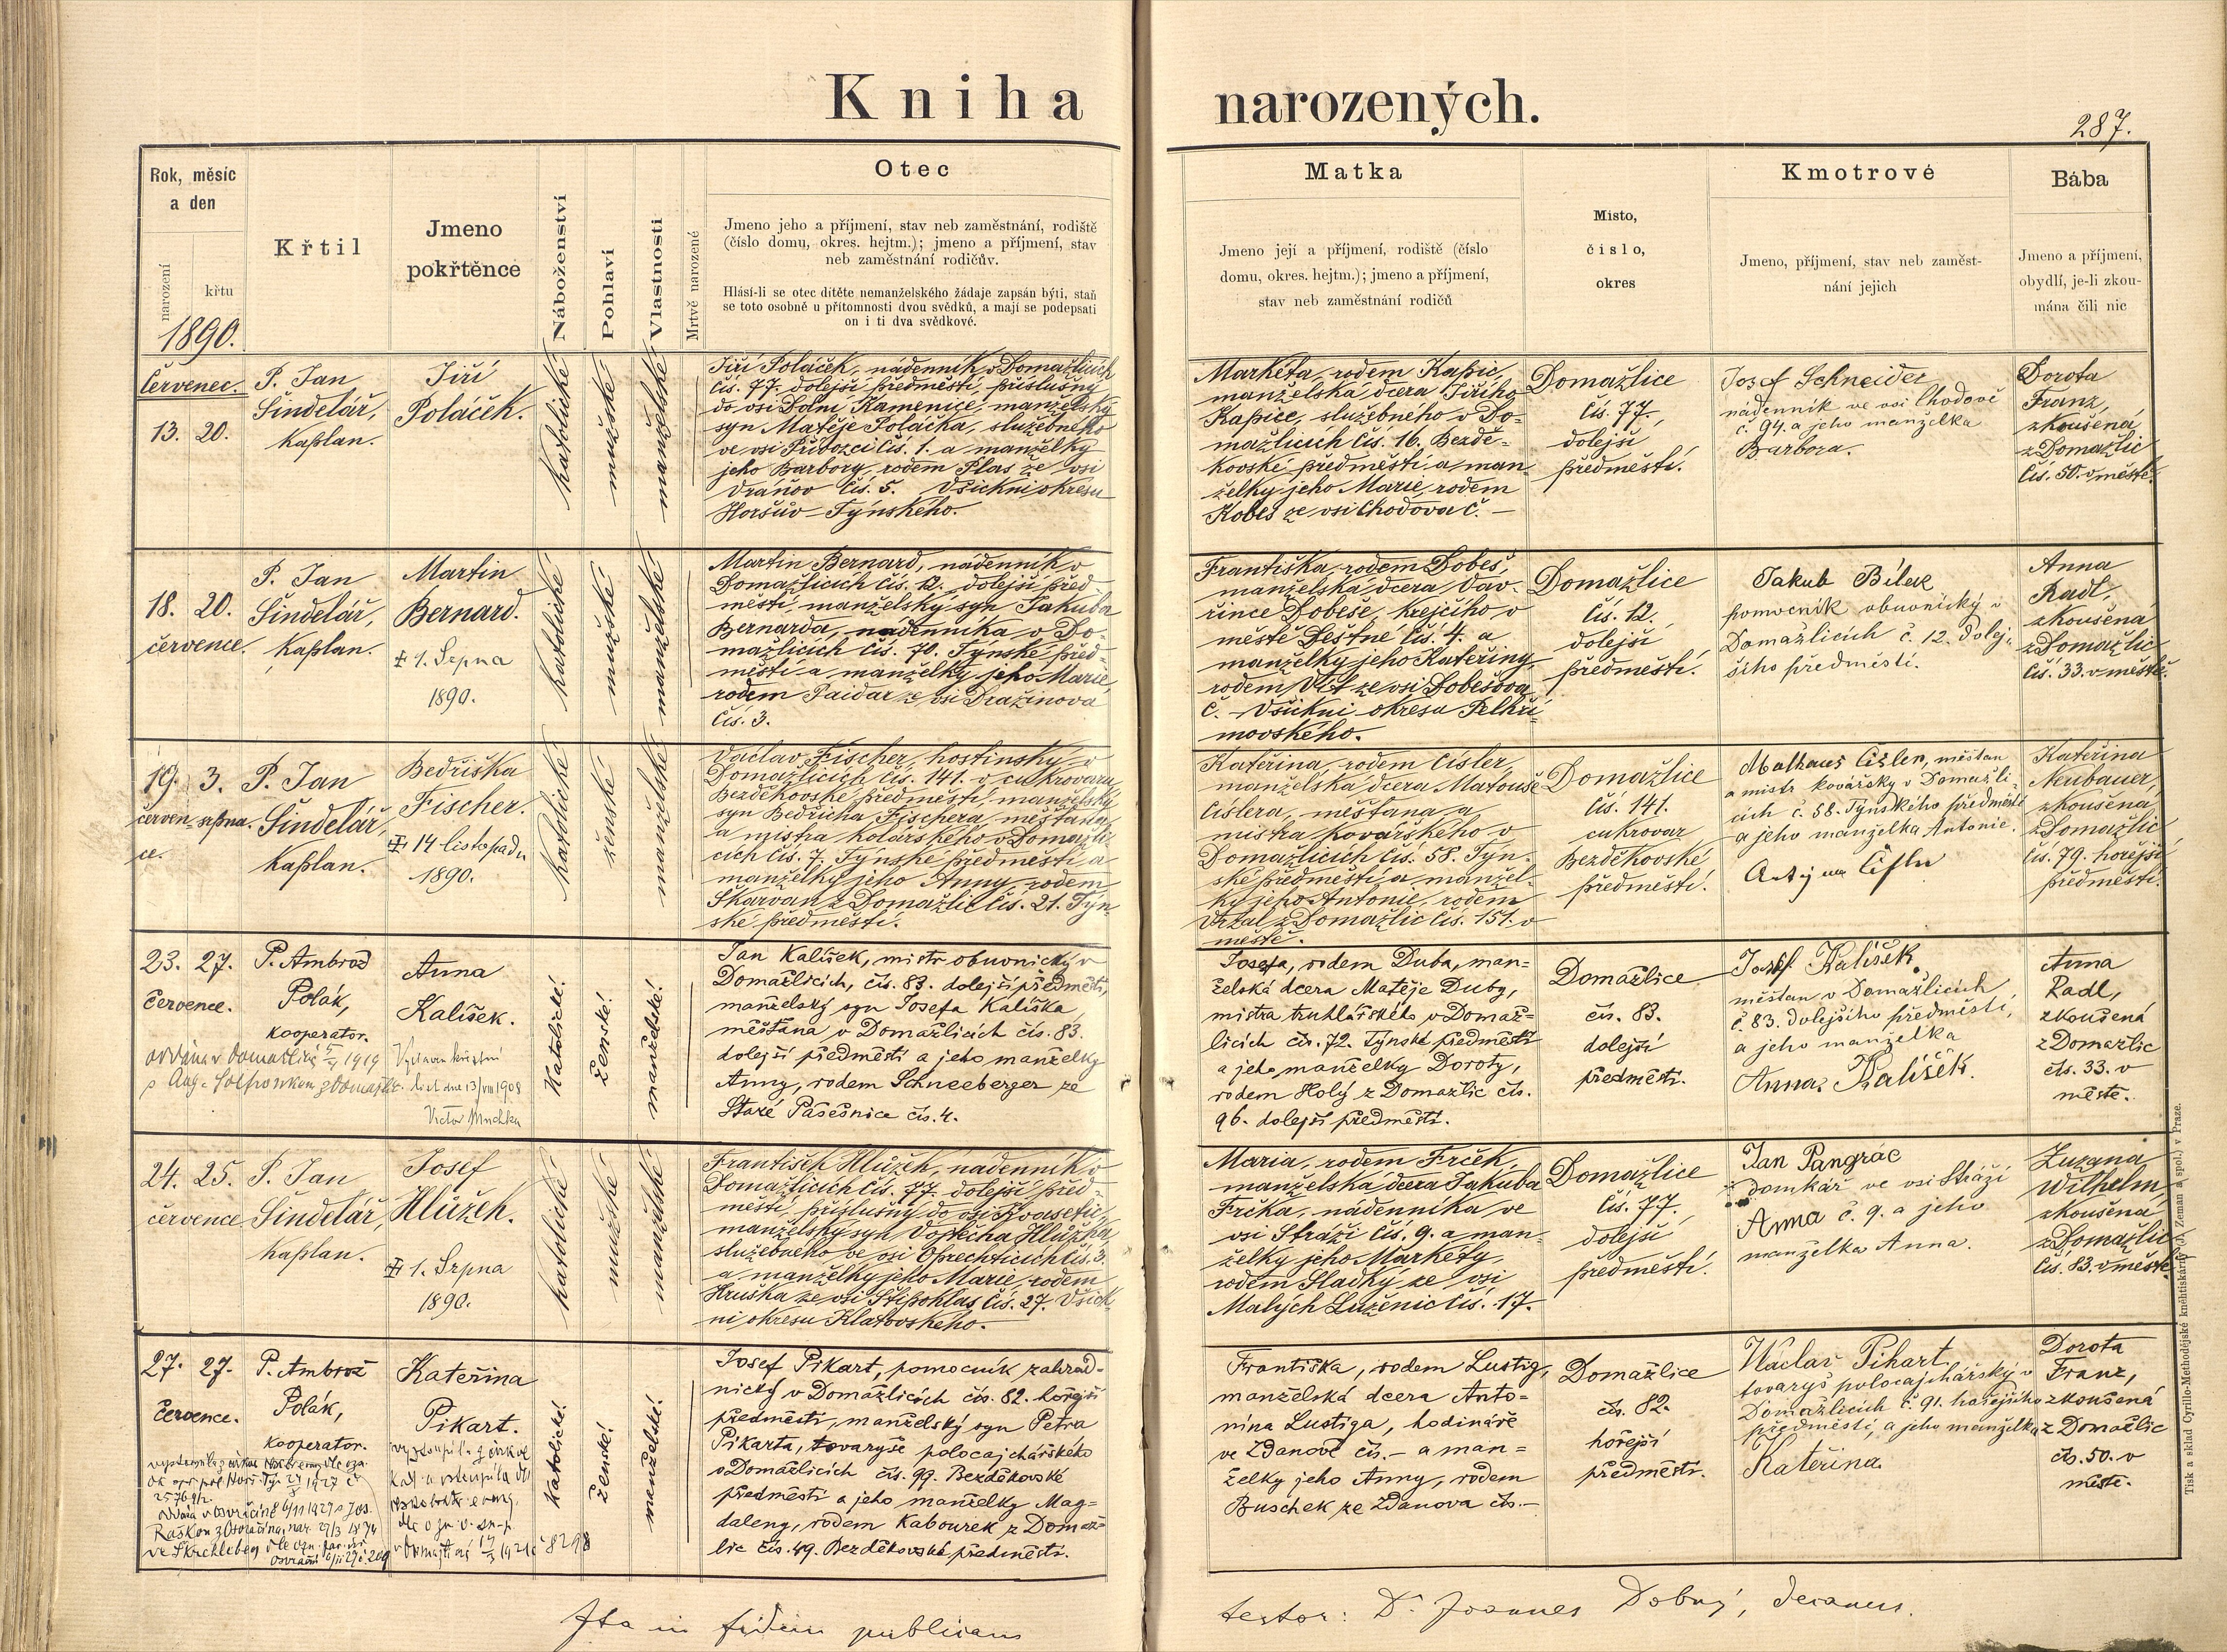 Kniha narozených.
287.
Rok, měsíc
a den
narození
křtu
1890.
Křtil
Jmeno
pokřtěnce
Náboženství
Pohlaví
Vlastnosti
Mrtvě narozené
Otec
Jmeno jeho a příjmení, stav neb zaměstnání, rodiště
(číslo domu, okres. hejtm.); jmeno a příjmení, stav
neb zaměstnání rodičův.
Hlásí-li se otec dítěte nemanželského žádaje zapsán býti, staň
se toto osobně u přítomnosti dvou svědků, a mají se podepsati
on i ti dva svědkové.
Matka
Jmeno její a příjmení, rodiště (číslo
domu, okres. hejtm.); jmeno a příjmení,
stav neb zaměstnání rodičů
Místo,
číslo,
okres
Kmotrové
Jmeno, příjmení, stav neb zaměst-
nání jejich
Bába
Jmeno a příjmení,
obydlí, je-li zkou-
mána čili nic
Červenec.
13. 20.
P. Jan
Šindelář,
kaplan.
Jiří
Poláček.
katolické
mužské
manželské
Jiří Poláček, nádenník v Domažlicích
čís. 77. dolejší předměstí, příslušný
do osi Dolní Kamenice, manželský
syn Matěje Poláčka, služebného
ve vsi Přívozci čís. 1. a manželky
jeho Barbory, rodem Plas ze vsi
Vránov čís. 5. Všickni okresu
Horšův-Týnského.
Markéta, rodem Kapic,
manželská dcera Jiřího
Kapice, služebného v Do-
mažlicích čís. 16. Bezdě-
kovské předměstí a man-
želky jeho Marie, rodem
Kobes ze vsi Chodova č. —
Domažlice
čís. 77.
dolejší
předměstí.
Josef Schneider
nádenník ve vsi Chodově
č. 94. a jeho manželka
Barbora.
Dorota
Franz,
zkoušená
z Domažlic
čís. 50. v městě.
18. 20.
července.
P. Jan
Šindelář,
kaplan.
Martin
Bernard.
1. Srpna
1890.
katolické
mužské
manželské
Martin Bernard, nádenník v
Domažlicích čís. 12. dolejší před-
městí, manželský syn Jakuba
Bernarda, nádenníka v Do-
mažlicích čís. 70. Týnské před-
městí a manželky jeho Marie,
rodem Paidar ze vsi Dražinova
čís. 3.
Františka, rodem Dobeš,
manželská dcera Vav-
řince Dobeše, krejčího v
městě Deštné čís. 4. a
manželky jeho Kateřiny,
rodem Vít ze vsi Dobešova
č. — Všickni okresu Pelhři-
movského.
Domažlice
čís. 12.
dolejší
předměstí.
Jakub Bílek
pomocník obuvnický v
Domažlicích č. 12. dolej-
šího předměstí.
Anna
Radl,
zkoušená
z Domažlic
čís. 33. v městě.
19. 3.
červen- srpna.
ce.
P. Jan
Šindelář,
kaplan.
Bedřiška
Fischer.
14 listopadu
1890.
katolické
ženské
manželské
Václav Fischer, hostinský v
Domažlicích čís. 141. v cukrovaru
Bezděkovské předměstí, manželský
syn Bedřicha Fischera, měšťana
a mistra kolářského v Domažli-
cích čís. 7. Týnské předměstí a
manželky jeho Anny, rodem
Škarvan z Domažlic čís. 21. Týn-
ské předměstí.
Kateřina, rodem Císler
manželská dcera Matouše
Císlera, měšťana a
mistra kovářského v
Domažlicích čís. 58. Týn-
ské předměstí a manžel-
ky jeho Antonie, rodem
Vrzal z Domažlic čís. 151. v
městě.
Domažlice
čís. 141.
cukrovar
Bezděkovské
předměstí.
Mathaus Cisler, měšťan
a mistr kovářsky v Domažli-
cích č. 58. Týnského předměstí
a jeho manželka Antonie.
Kateřina
Neubauer,
zkoušená
z Domažlic
čís. 79. hořejší
předměstí.
23. 27.
července.
P. Ambrož
Polák,
kooperator.
Anna
Kalíšek.
Vystaven křestní
list dne 13/VIII 1908
Victor
Katolické!
Ženské!
manželské!
Jan Kalíšek, mistr obuvnický v
Domažlicích, čís. 83. dolejší předměstí,
manželský syn Josefa Kalíška
měšťana v Domažlicích čís. 83.
dolejší předměstí a jeho manželky
Anny, rodem Schneeberger ze
Staré Pasečnice čís. 4.
Josefa, rodem Duba, man=
želská dcera Matěje Duby,
mistra truhlářského v Domaž=
licích čís. 72. Týnské předměstí
a jeho manželky Doroty,
rodem Holý z Domažlic čís.
96. dolejší předměstí.
Domažlice
čís. 83.
dolejší
předměstí.
Josef Kalíšek
měšťan v Domažlicích
č. 83. dolejšího předměstí,
a jeho manželka
Anna Kalíšek.
Anna
Radl,
zkoušená
z Domažlic
čís. 33. v
městě.
24. 25.
července
P. Jan
Šindelář,
kaplan.
Josef
Hlůžek.
1. Srpna
1890.
katolické
mužské
manželské
František Hlůžek, nádenník v
Domažlicích čís. 77. dolejší před-
městí, příslušný do osi Kvasetic,
manželský syn Vojtěcha Hlůžka,
služebného ve vsi Oprechticích čís. 3.
a manželky jeho Marie, rodem
Hruška ze vsi Štipoklas čís. 27. Všick-
ni okresu Klatovského.
Maria, rodem Frček,
manželská dcera Jakuba
Frčka, nádenníka ve
vsi Stráži čís. 9. a man-
želky jeho Markéty,
rodem Sladký ze vsi
Malých Luženic čís. 17.
Domažlice
čís. 77.
dolejší
předměstí.
Jan Pangrác
domkář ve vsi Stráži
Anna č. 9. a jeho
manželka Anna.
Zuzana
Wilhelm,
zkoušená
z Domažlic
čís. 83. v městě.
27. 27.
července.
P. Ambrož
Polák,
kooperator.
Kateřina
Pikart.
Katolické!
Ženské!
manželské!
Josef Pikart, pomocník zahrad-
nický v Domažlicích čís. 82. hořejší
předměstí, manželský syn Petra
Pikarta, tovaryše polocajchářského
v Domažlicích čís. 99. Bezděkovské
předměstí a jeho manželky Mag=
daleny, rodem Kabourek z Domaž=
lic čís. 49. Bezděkovské předměstí.
Františka, rodem Lustig,
manželská dcera Anto=
nína Lustiga, hodináře
ve Ždanově čís. — a man=
želky jeho Anny, rodem
Buschek ze Ždanova čís. —
Domažlice
čís. 82.
hořejší
předměstí.
Václav Pikart,
tovaryš polocajchářský v
Domažlicích č. 91. hořejšího
předměstí, a jeho manželka
Kateřina
Dorota
Franz,
zkoušená
z Domažlic
čís. 50. v
městě.
Ita in fidem publicam
testor: Dr Joannes Dobný, decanus.
Tisk a sklad Cyrillo-Methodějské knihtiskárny (J. Zeman a spol.) v Praze.